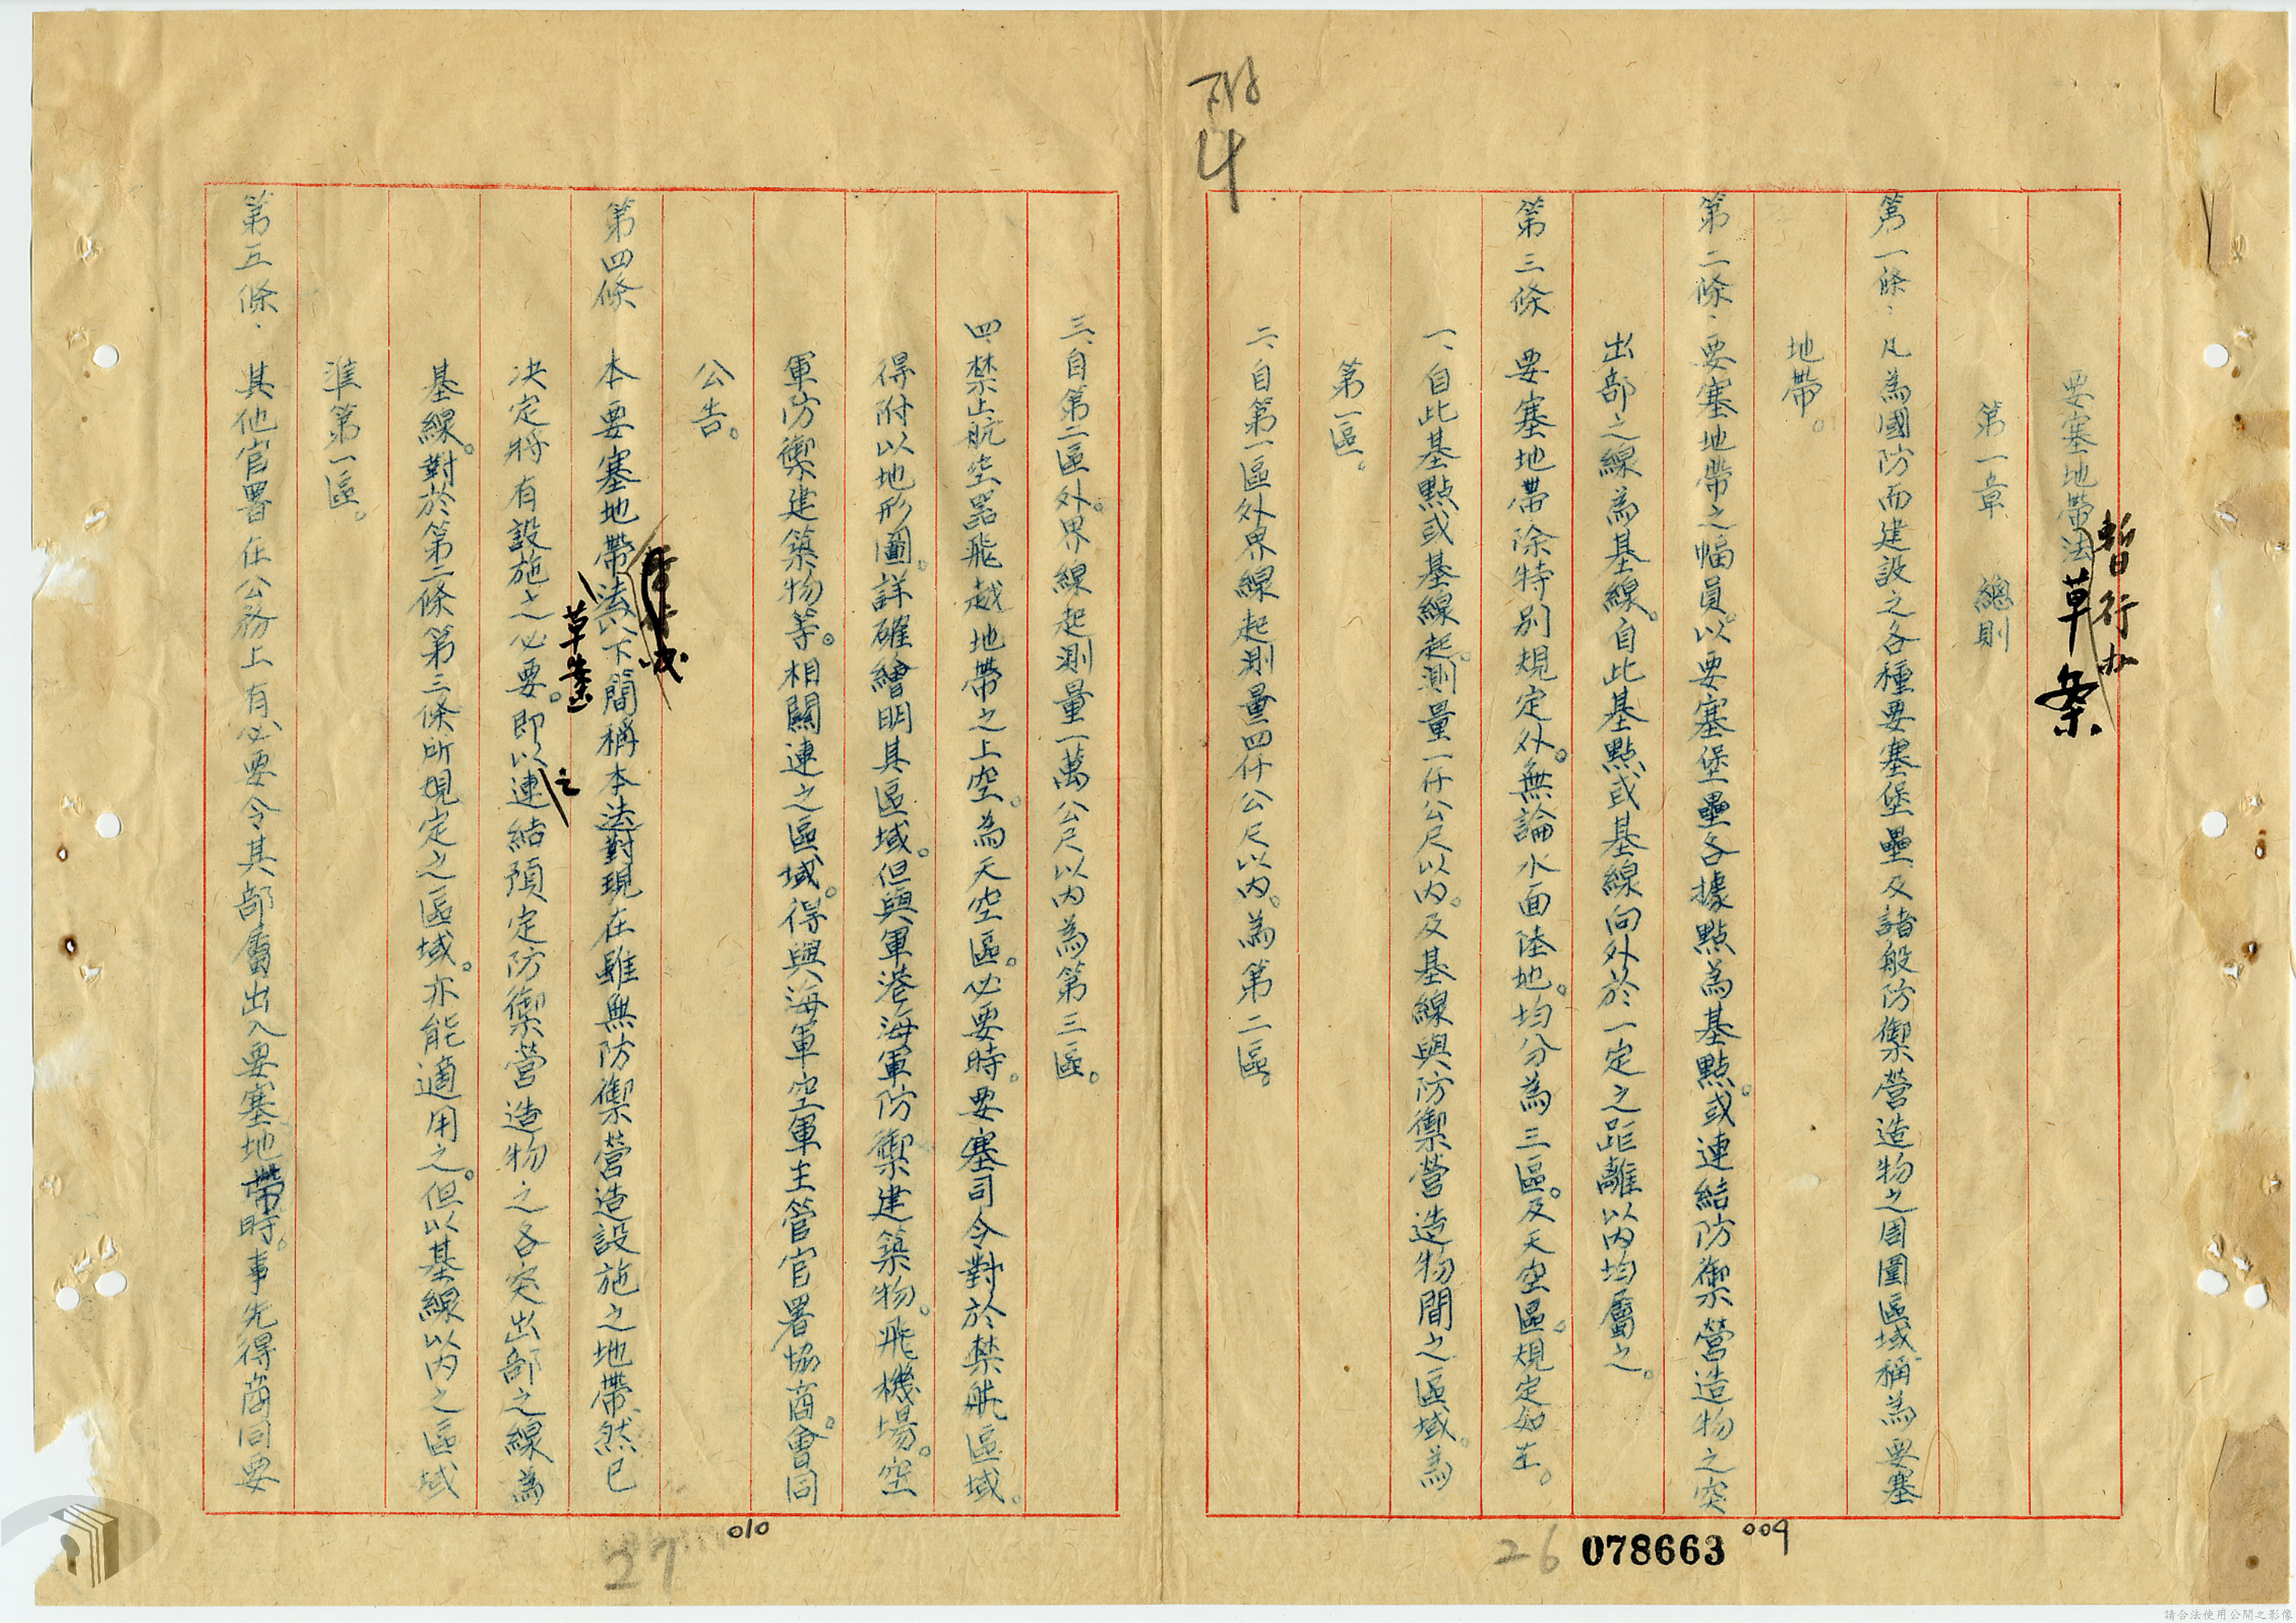 附
4
要塞地帶法草案
暫行办
第一章　總則
第一條：凡為國防而建設之各種要塞堡壘及諸般防禦營造物之周圍區域稱為要塞
地帶。
第二條：要塞地帶之幅員。以要塞堡壘各據點為基點。或連結防禦營造物之突
出部之線為基線。自此基點或基線向外於一定之距離以內均屬之。
第三條　要塞地帶除特別規定外。無論水面陸地。均分為三區。及天空區。規定如左。
一、自此基點或基線起。測量一仟公尺以內。及基線與防禦營造物間之區域。為
第一區。
二、自第一區外界線起測量四仟公尺以內。為第二區。
078663
009
26
三、自第二區外。界線起測量一萬公尺以內為第三區。
四、禁止航空器飛越地帶之上空。為天空區。必要時。要塞司令對於禁航區域。
得附以地形圖。詳確繪明其區域。但與軍港海軍防禦建築物。飛機場。空
軍防禦建築物等。相關連之區域。得與海軍空軍主管官署協商。會同
公告。
第四條　本要塞地帶法以下簡稱本法對現在雖無防禦營造設施之地帶、然已
草案
决定將有設施之必要。即以連結預定防禦營造物之各突出部之線為
之
基線。對於第二條第三條所規定之區域。亦能適用之。但以基線以內之區域
準第一區。
第五條：其他官署在公務上有必要令其部屬出入要塞地帶時。事先得商同要
010
27
請合法使用公開之影像